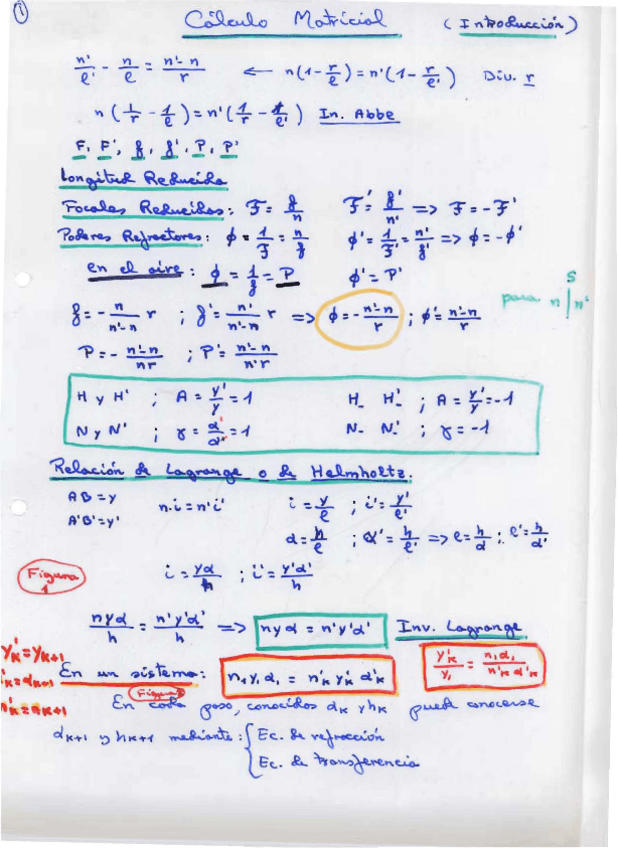 1
Cálculo Matricial (Introducción)
n'/e' - n/e = n'-n/r ← n(1-r/e) = n'(1-r/e') Div. r
n(1/r - 1/e) = n'(1/r - 1/e') In. Abbe
F, F', f, f', P, P'
Longitud Reducida
Focales Reducidas: F = f/n F' = f'/n' => F = -F'
Poderes Refractores: ϕ = 1/F = n/f ϕ' = 1/F' = n'/f' => ϕ = -ϕ'
en el aire: ϕ = 1/f = P ϕ' = P'
S
para n | n'
f = - n/n'-n r ; f' = n'/n'-n r => ϕ = - n'-n/r ; ϕ' = n'-n/r
P = - n'-n/nr ; P' = n'-n/n'r
H y H' ; A = y'/y = 1 H_ H'_ ; A = y'/y = -1
N y N' ; γ = α'/α = 1 N_ N'_ ; γ = -1
Relación de Lagrange o de Helmholtz.
AB = y n.i = n'i' i = y/e ; i' = y'/e'
A'B' = y' α = h/e ; α' = h/e' => e = h/α ; e' = h/α'
Figura 1
i = yα/h ; i' = y'α'/h
nyα/h = n'y'α'/h => nyα = n'y'α' Inv. Lagrange
y'k = yk+1
α'k = αk+1
n'k = nk+1
En un sistema: n1 y1 α1 = n'k y'k α'k y'k/y1 = n1 α1/n'k α'k
Figura
En cada paso, conocidos αk y hk puede conocerse
αk+1 y hk+1 mediante: { Ec. de refracción
Ec. de transferencia